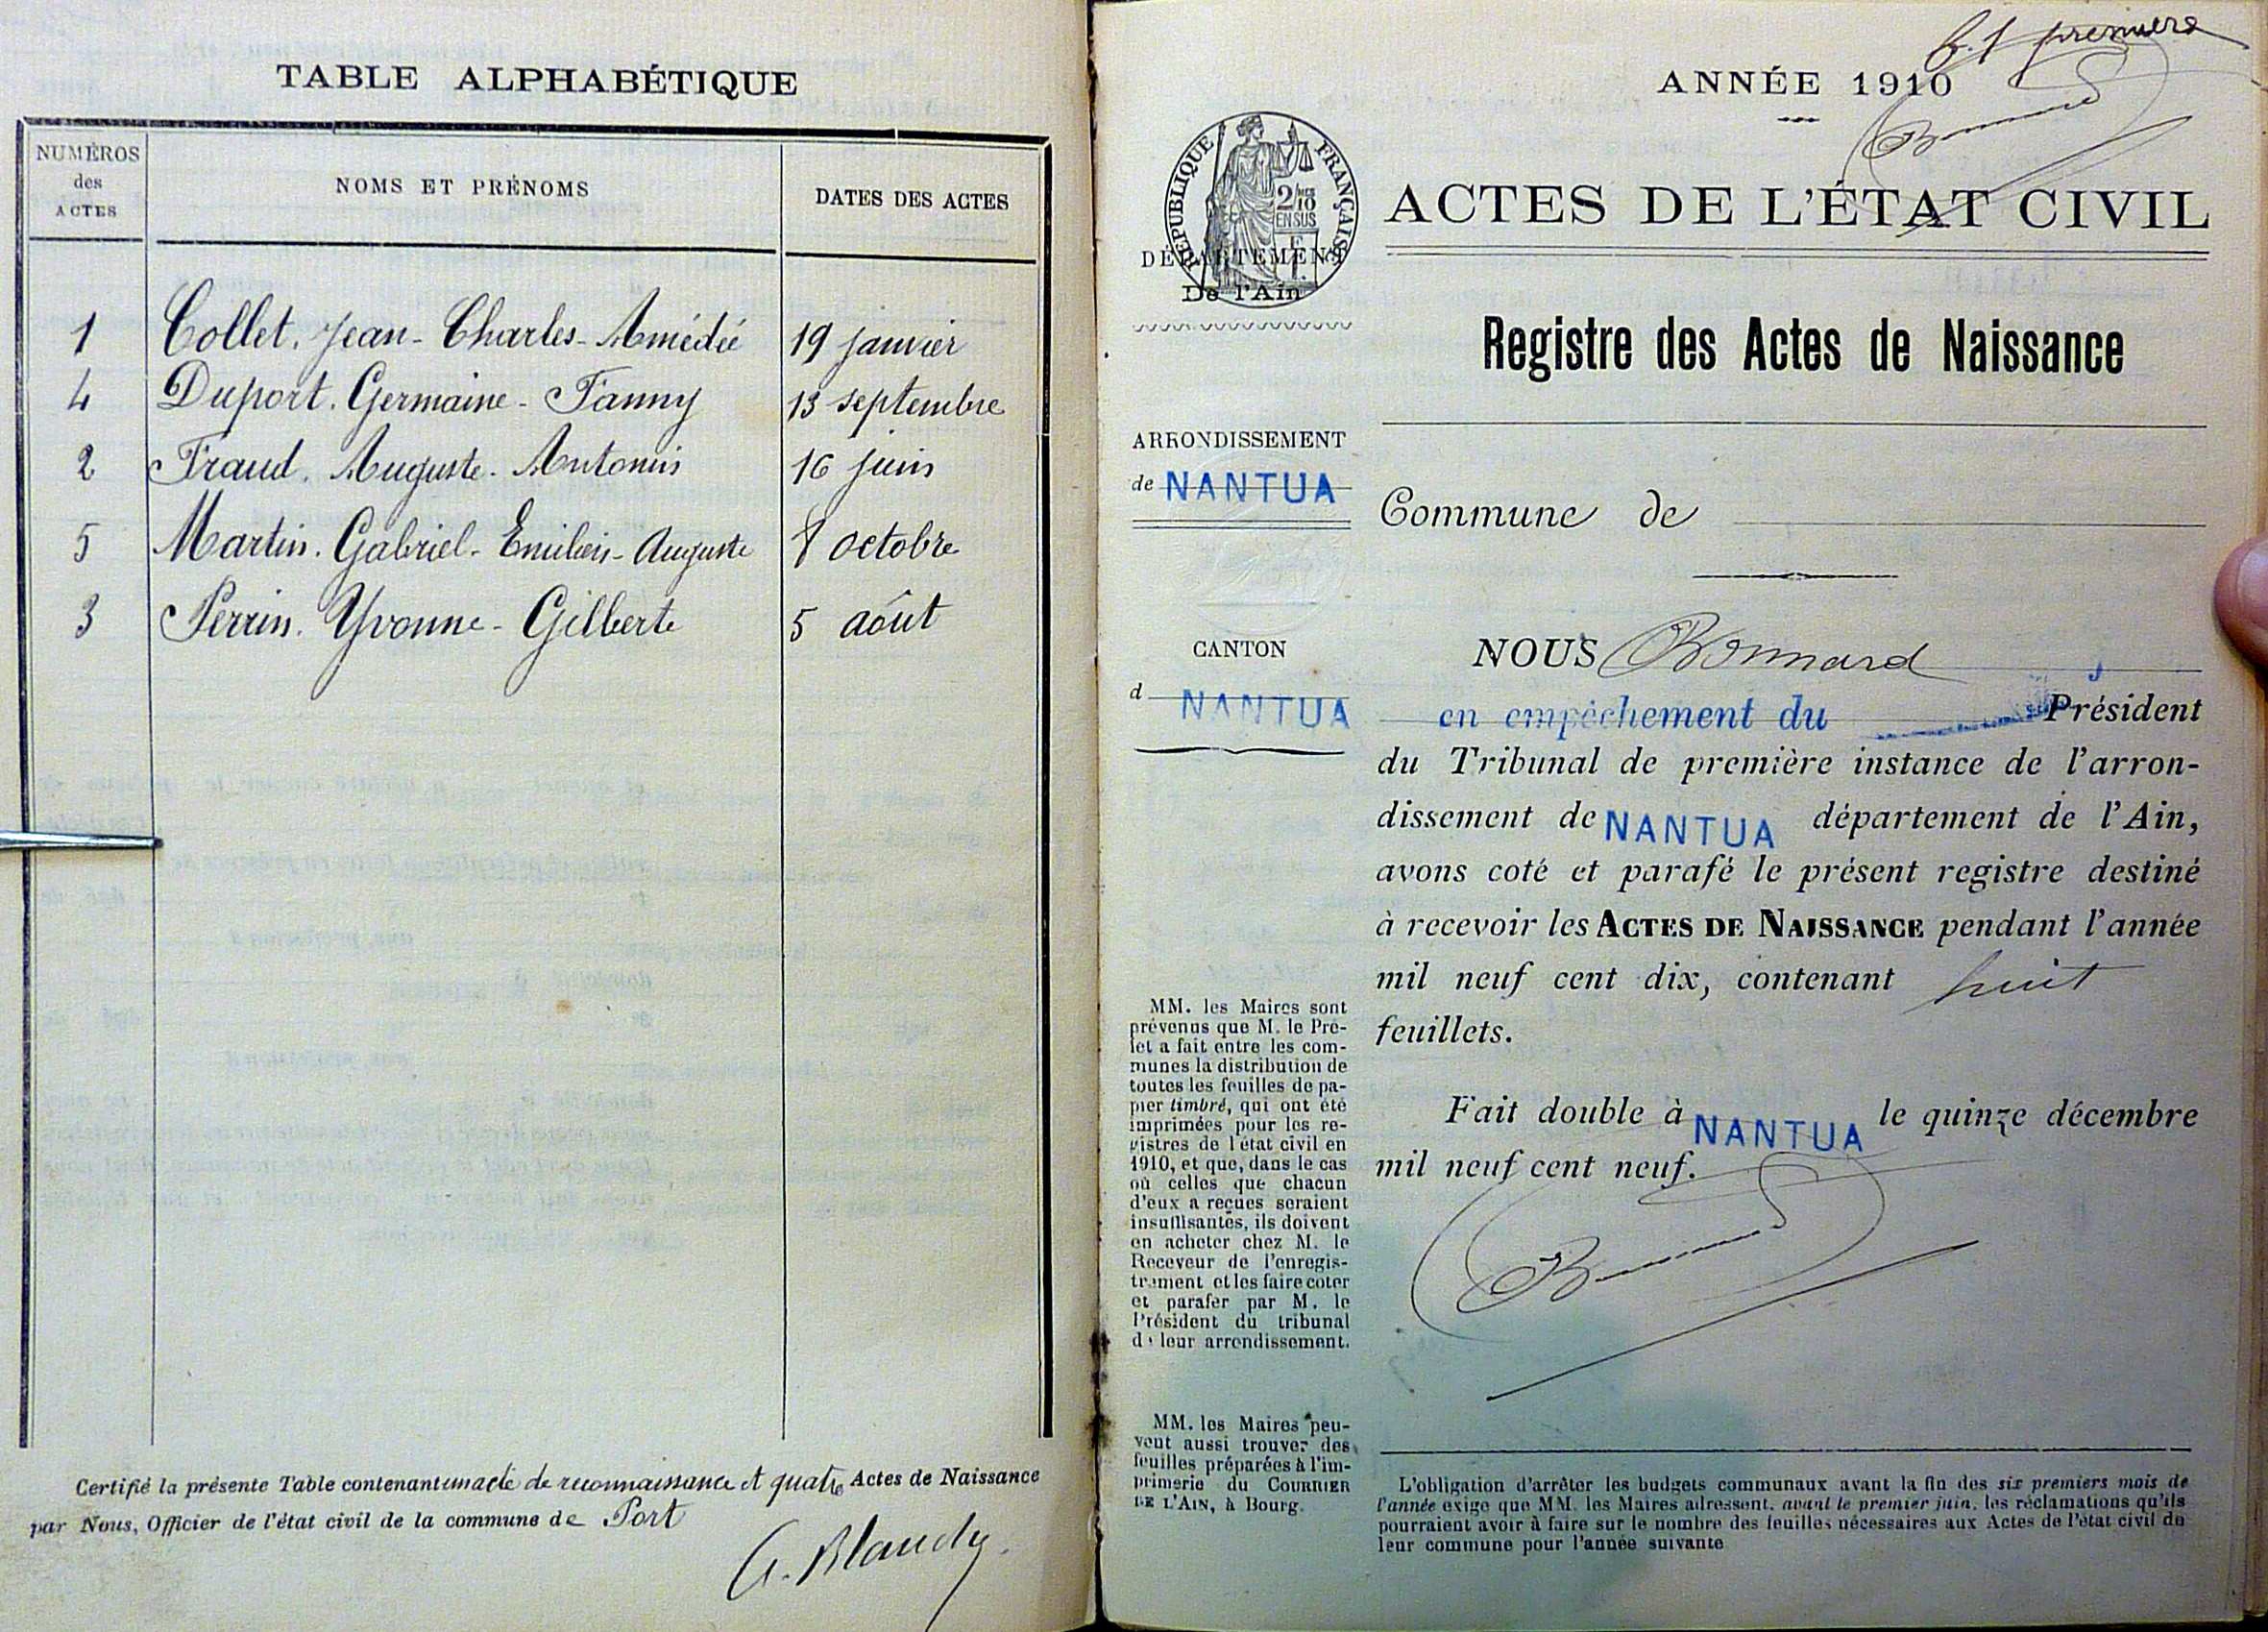 TABLE ALPHABÉTIQUE
NUMÉROS des ACTES
NOMS ET PRÉNOMS
DATES DES ACTES
1 Collet. Jean-Charles-Amédée 19 janvier
4 Duport. Germaine-Fanny 13 septembre
2 Fraud. Auguste-Antonin 16 juin
5 Martin. Gabriel-Emilien-Auguste 8 octobre
3 Perrin. Yvonne-Gilberte 5 août
Certifié la présente Table contenant un acte de reconnaissance et quatre Actes de Naissance
par Nous, Officier de l'état civil de la commune de Port
A. Blandy
première
ANNÉE 1910
RÉPUBLIQUE FRANÇAISE
2/10
EN SUS
ACTES DE L'ÉTAT CIVIL
DÉPARTEMENT
De l'Ain
Registre des Actes de Naissance
ARRONDISSEMENT
de NANTUA
Commune de
CANTON
d NANTUA
MM. les Maires sont
prévenus que M. le Pré-
fet a fait entre les com-
munes la distribution de
toutes les feuilles de pa-
pier timbré, qui ont été
imprimées pour les re-
gistres de l'état civil en
1910, et que, dans le cas
où celles que chacun
d'eux a reçues seraient
insuffisantes, ils doivent
en acheter chez M. le
Receveur de l'enregis-
trement et les faire coter
et parafer par M. le
Président du tribunal
de leur arrondissement.
MM. les Maires peu-
vent aussi trouver des
feuilles préparées à l'im-
primerie du COURRIER
DE L'AIN, à Bourg.
NOUS Bonnard
en empêchement du Président
du Tribunal de première instance de l'arron-
dissement de NANTUA département de l'Ain,
avons coté et parafé le présent registre destiné
à recevoir les ACTES DE NAISSANCE pendant l'année
mil neuf cent dix, contenant huit
feuillets.
Fait double à NANTUA le quinze décembre
mil neuf cent neuf.
L'obligation d'arrêter les budgets communaux avant la fin des six premiers mois de
l'année exige que MM. les Maires adressent, avant le premier juin, les réclamations qu'ils
pourraient avoir à faire sur le nombre des feuilles nécessaires aux Actes de l'état civil de
leur commune pour l'année suivante